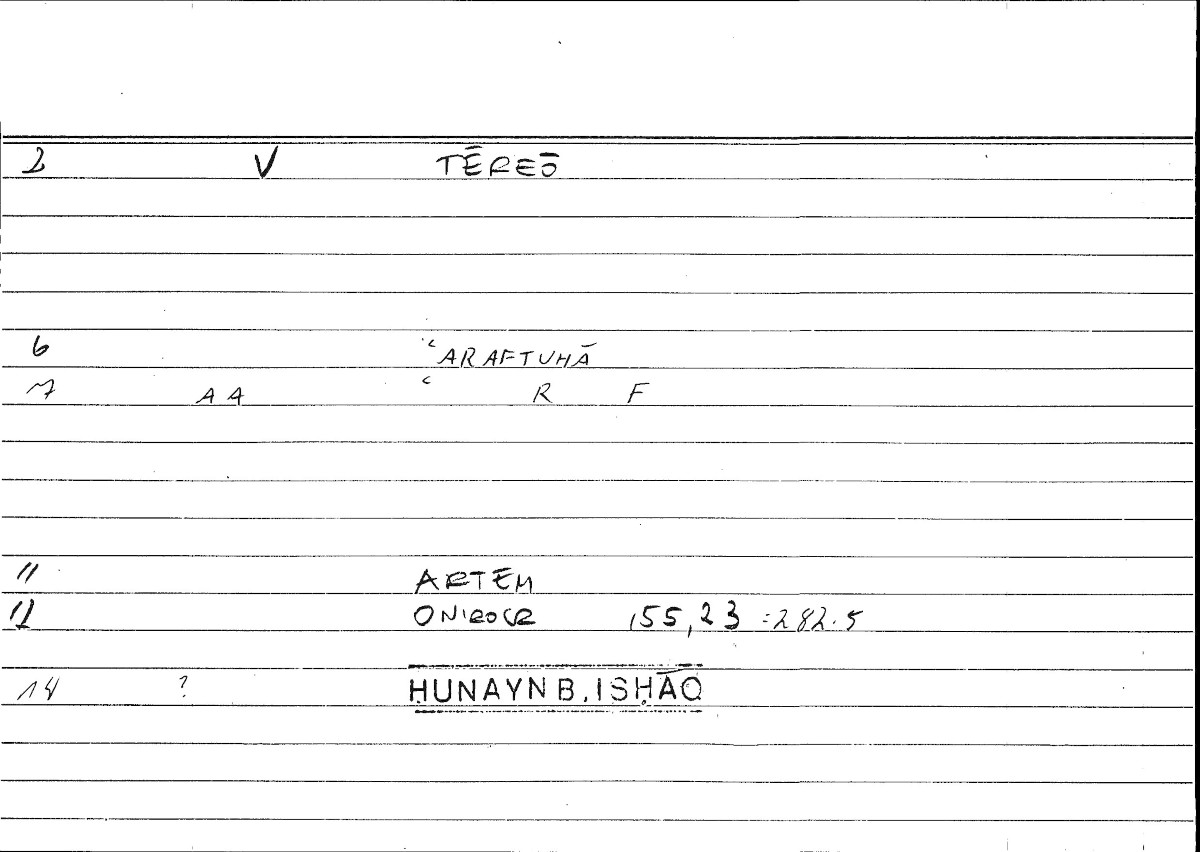 2 V TĒREŌ
6 ʿARAFTUHĀ
7 AA ʿ R F
11 ARTEM
12 ONIROCR 155,23 =282.5
14 ? ḤUNAYN B. ISḤĀQ